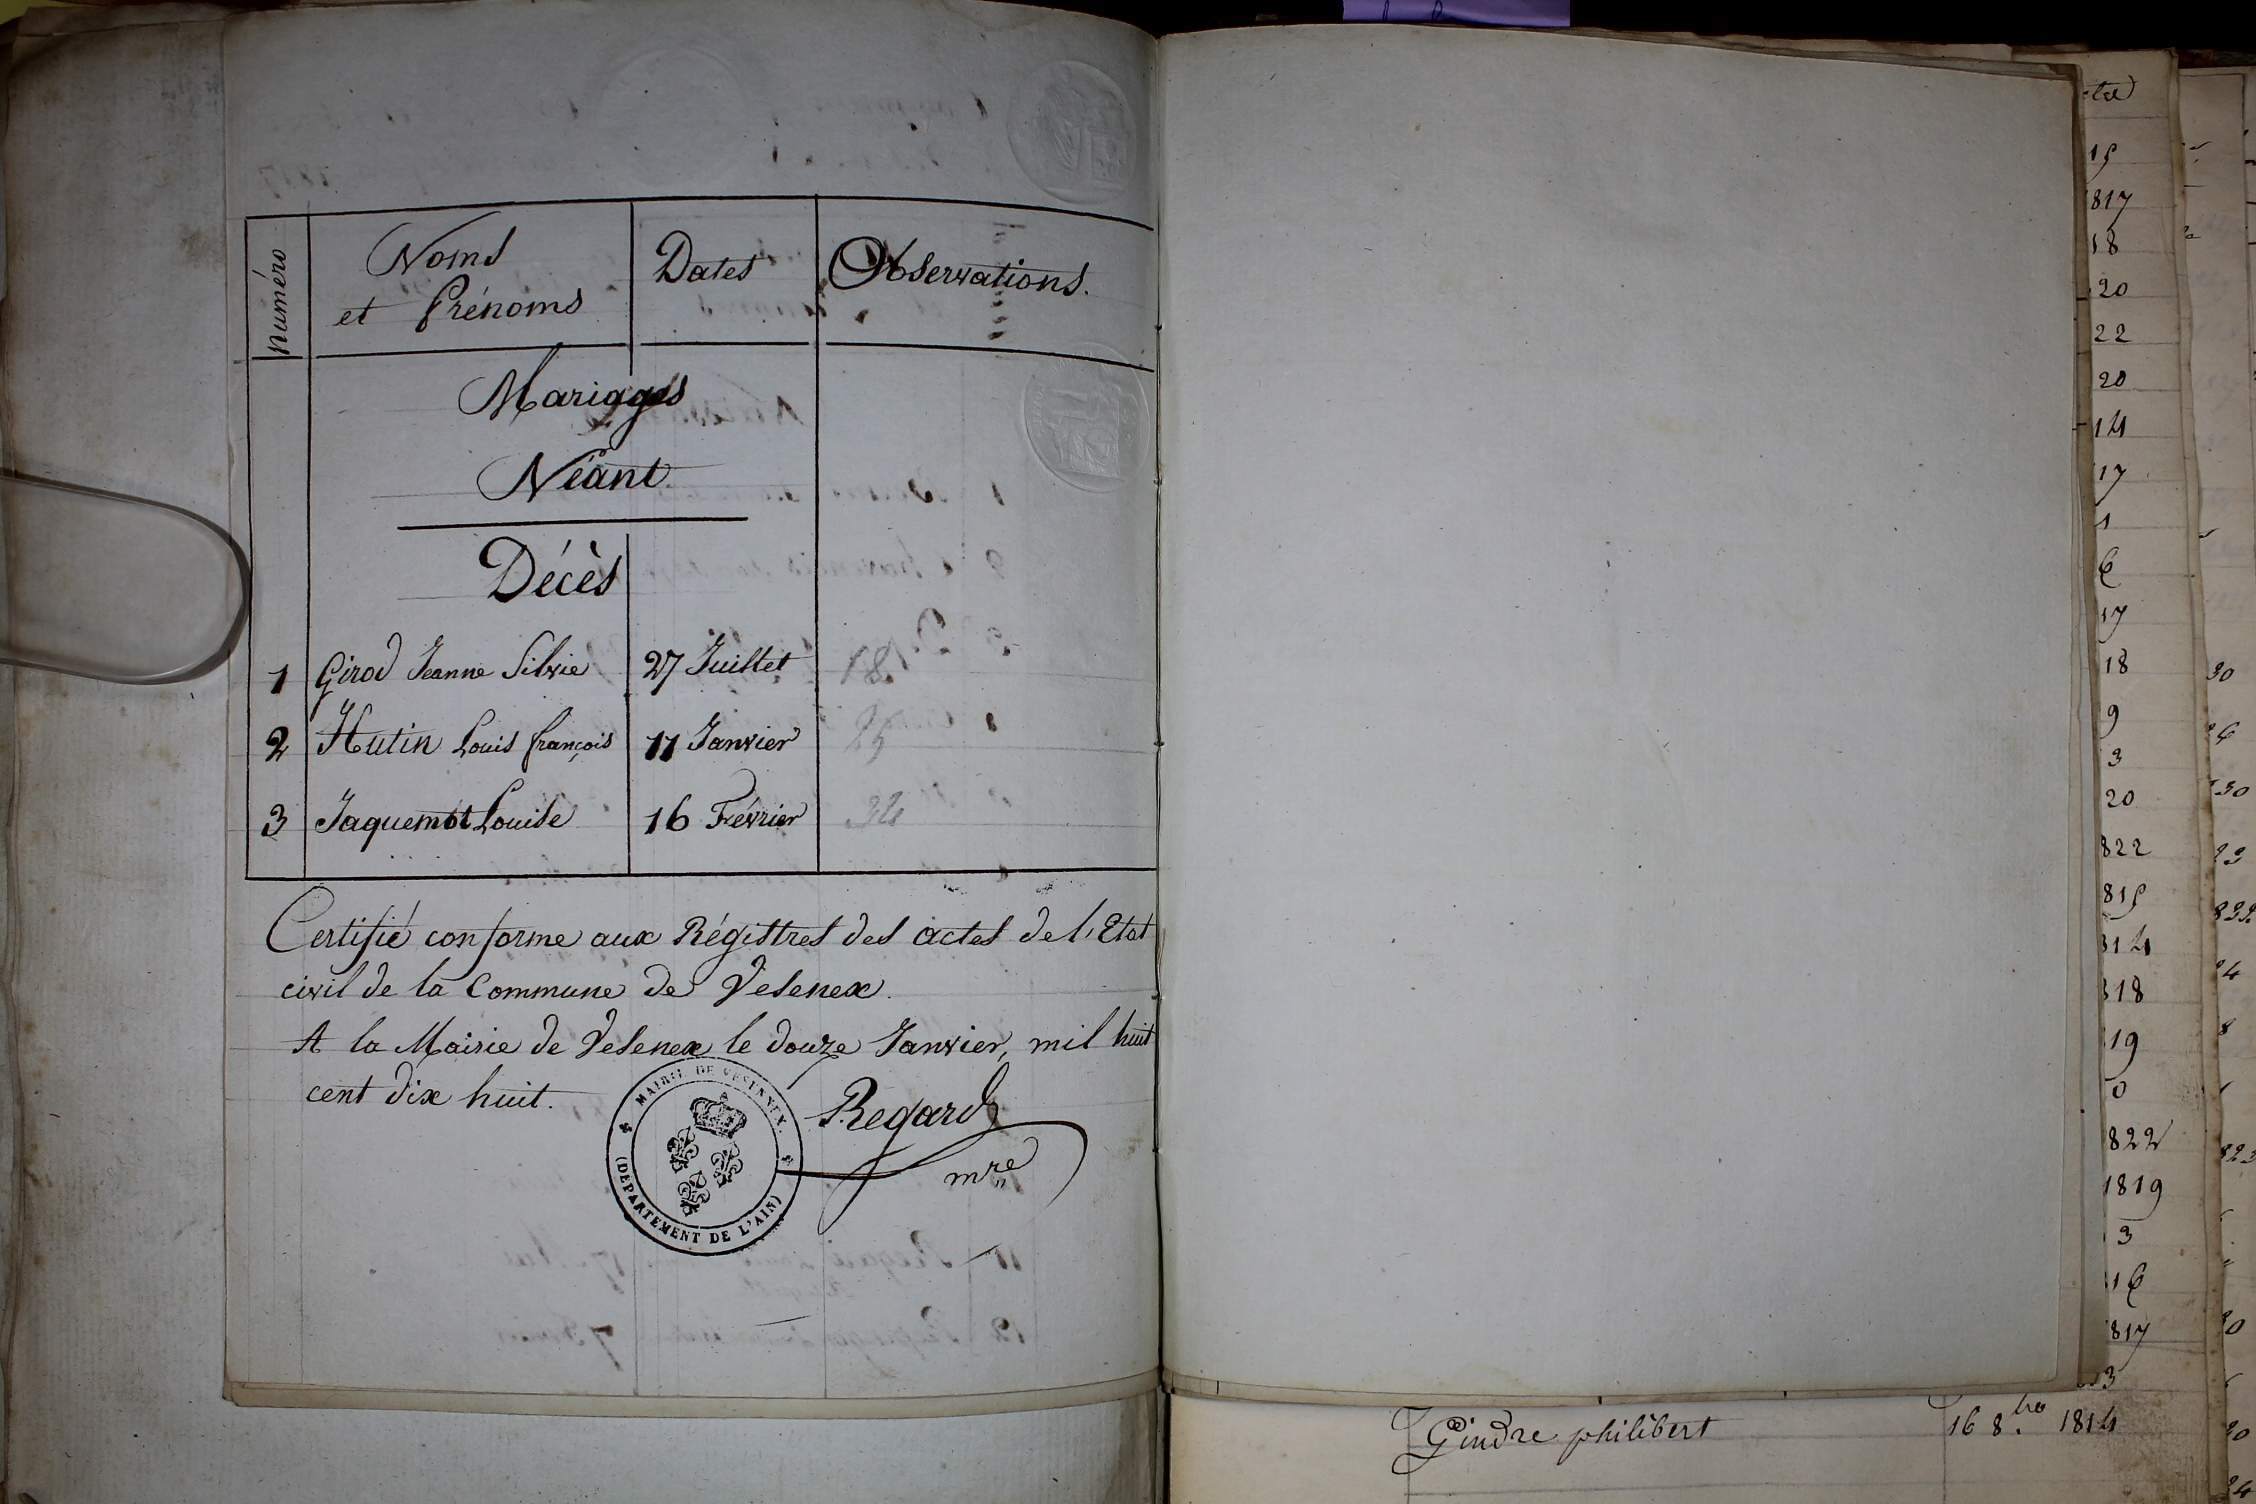 numéro
Noms
et Prénoms
Dates
Observations.
Mariages
Néant
Décès
1 Girod Jeanne Silvie 27 Juillet 18
2 Hutin Louis françois 11 Janvier 25
3 Jaquemot Louise 16 Février 34
Certifié conforme aux Régistres des actes de l'Etat
civil de la Commune de Vesenex.
A la Mairie de Vesenex le douze Janvier, mil huit
cent dix huit.
MAIRIE DE VESENEX.
(DEPARTEMENT DE L'AIN)
Regard
mre
Gindre philibert 16 8.bre 1814
817
18
20
22
20
14
17
1
6
17
18
9
3
20
822
815
314
318
19
0
822
1819
3
16
817
3